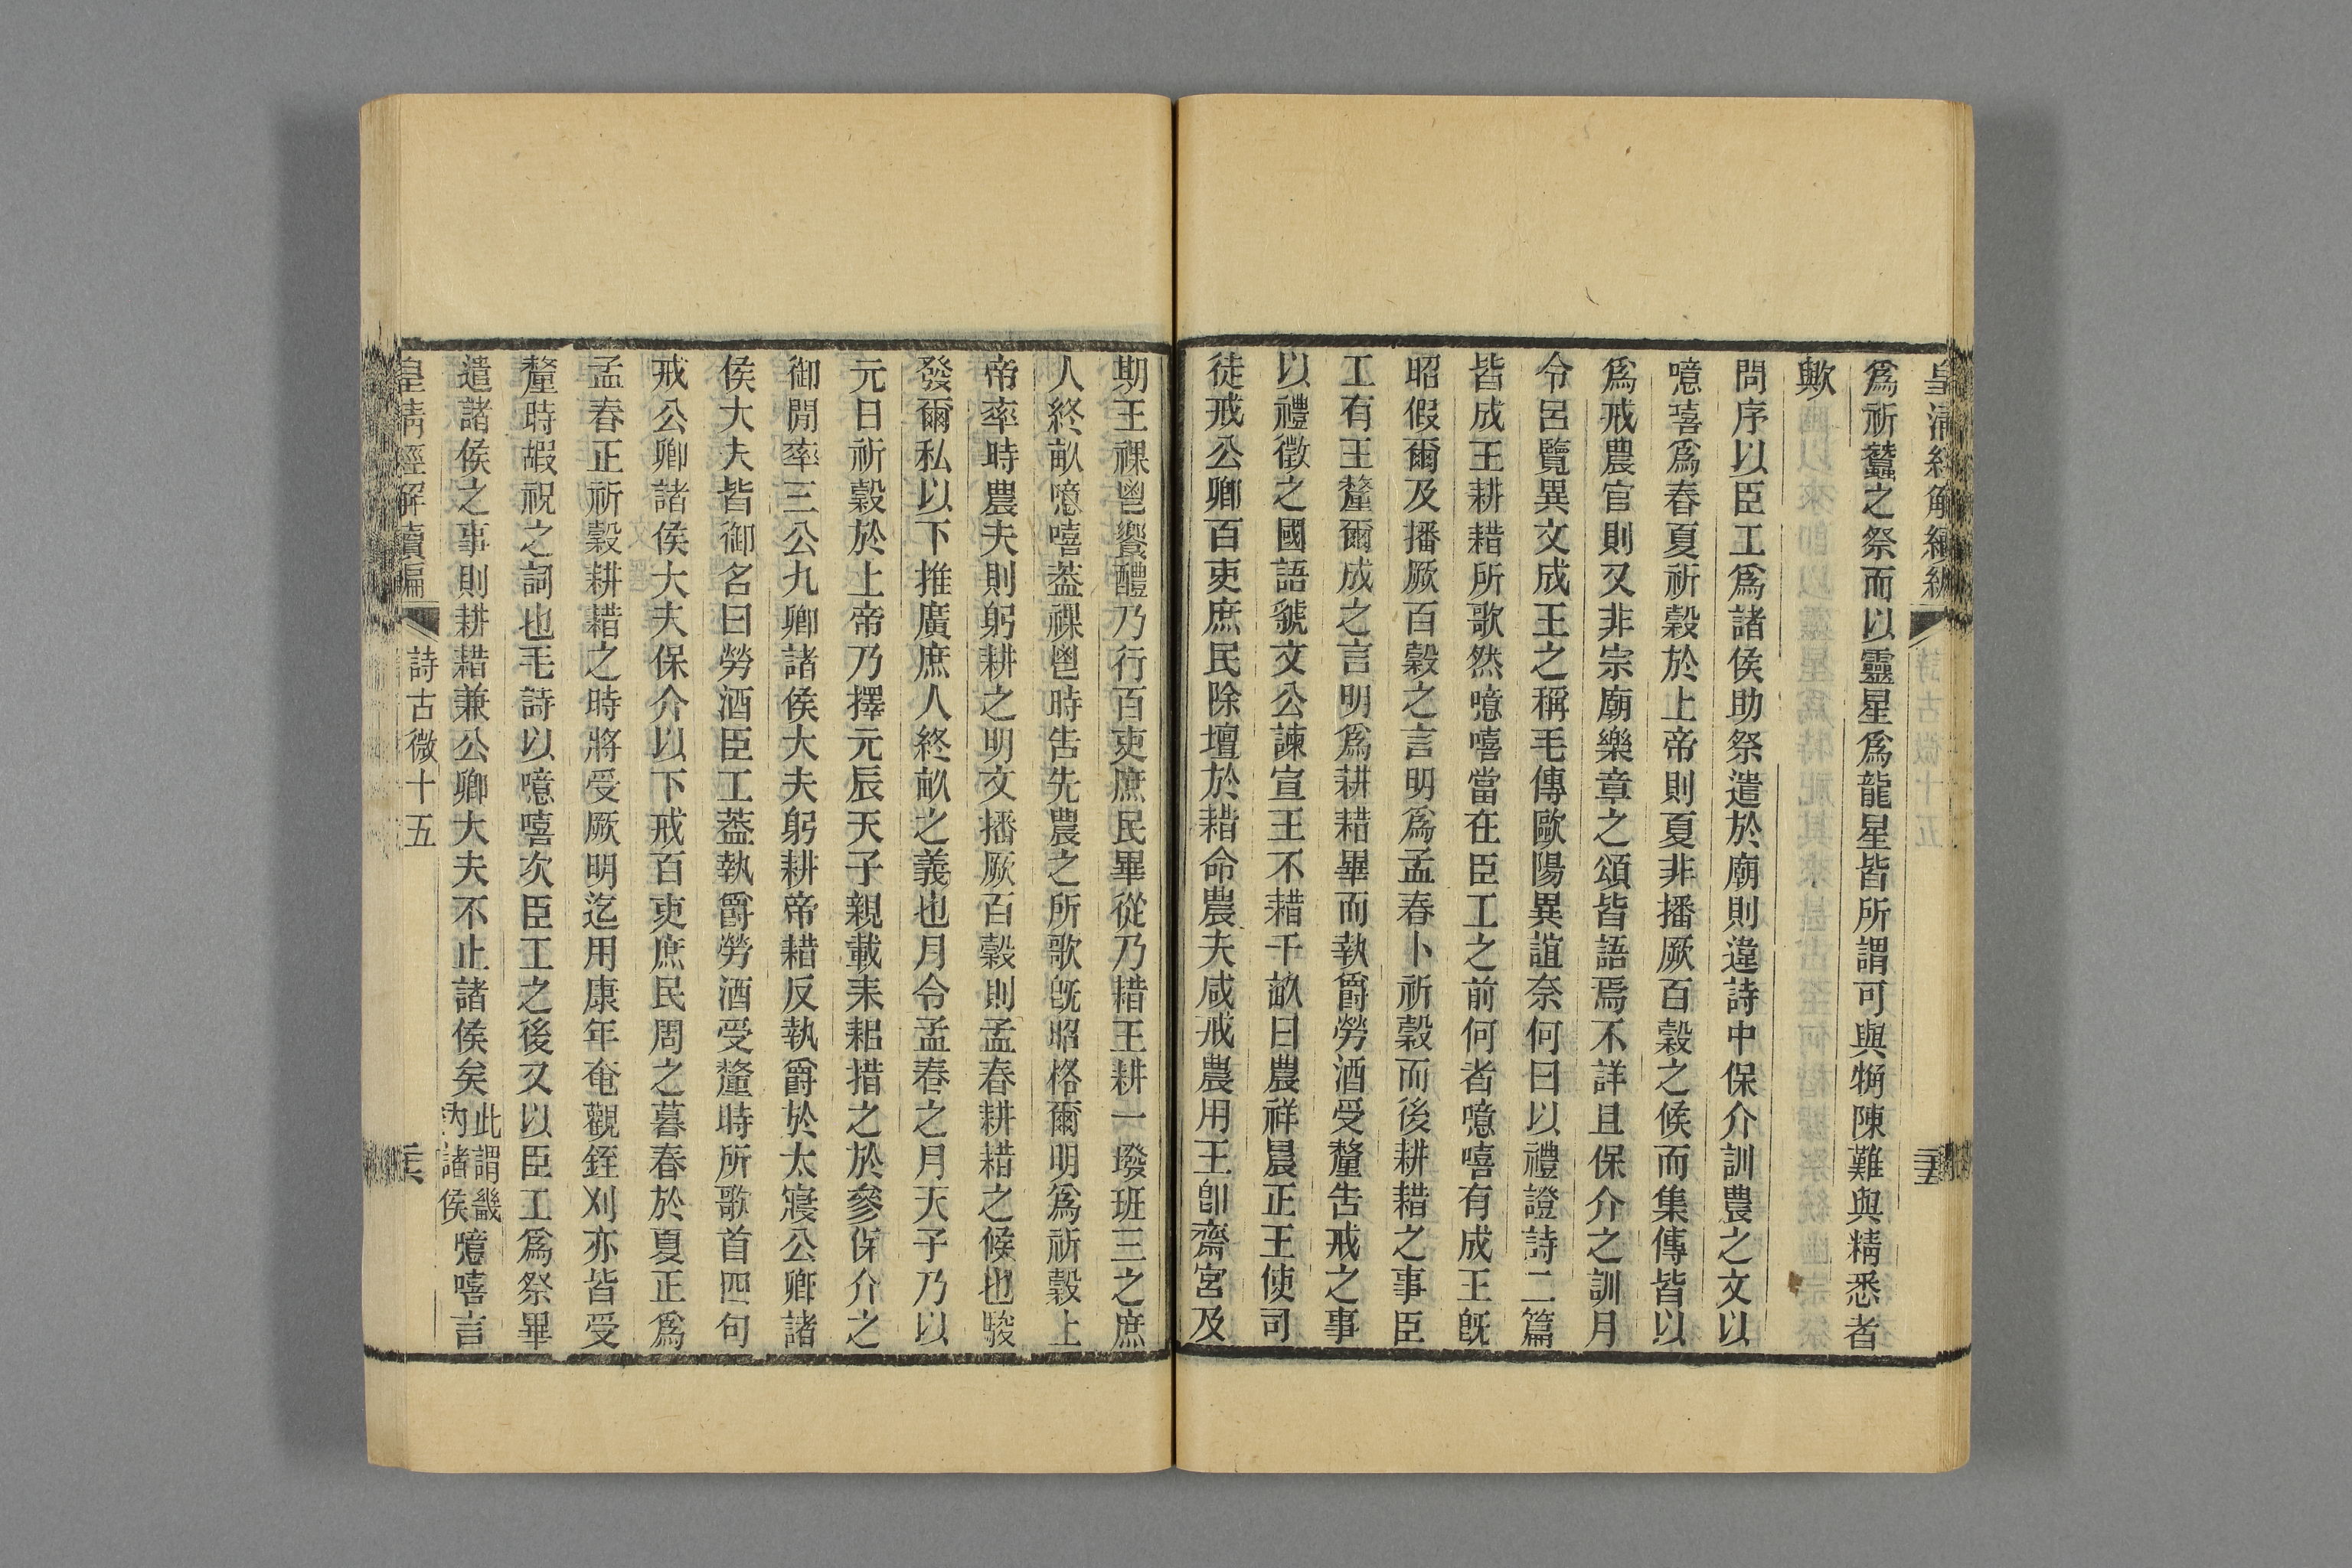 皇清經解續編
爲祈蠶之祭而以靈星爲龍星皆所謂可與觕陳難與精悉者
歟
問序以臣工爲諸侯助祭遣於廟則違詩中保介訓農之文以
噫嘻爲春夏祈穀於上帝則夏非播厥百穀之候而集傳皆以
爲戒農官則又非宗廟樂章之頌皆語焉不詳且保介之訓月
令呂覽異文成王之稱毛傳歐陽異誼奈何曰以禮證詩二篇
皆成王耕耤所歌然噫嘻當在臣工之前何者噫嘻有成王旣
昭假爾及播厥百穀之言明爲孟春卜祈穀而後耕耤之事臣
工有王釐爾成之言明爲耕耤畢而執爵勞酒受釐告戒之事
以禮徵之國語虢文公諫宣王不耤千畝曰農祥晨正王使司
徒戒公卿百吏庶民除壇於耤命農夫咸戒農用王卽齋宮及
期王祼鬯饗醴乃行百吏庶民畢從乃耤王耕一墢班三之庶
人終畝噫嘻葢祼鬯時告先農之所歌旣昭格爾明爲祈穀上
帝率時農夫則躬耕之明文播厥百穀則孟春耕耤之候也駿
發爾私以下推廣庶人終畝之義也月令孟春之月天子乃以
元日祈穀於上帝乃擇元辰天子親載耒耜措之於參保介之
御閒率三公九卿諸侯大夫躬耕帝耤反執爵於太寢公卿諸
侯大夫皆御名曰勞酒臣工葢執爵勞酒受釐時所歌首四句
戒公卿諸侯大夫保介以下戒百吏庶民周之暮春於夏正爲
孟春正祈穀耕耤之時將受厥明迄用康年奄觀銍刈亦皆受
釐時嘏祝之詞也毛詩以噫嘻次臣工之後又以臣工爲祭畢
遣諸侯之事則耕耤兼公卿大夫不止諸侯矣此謂畿內諸侯噫嘻言
皇清經解續編 詩古微十五